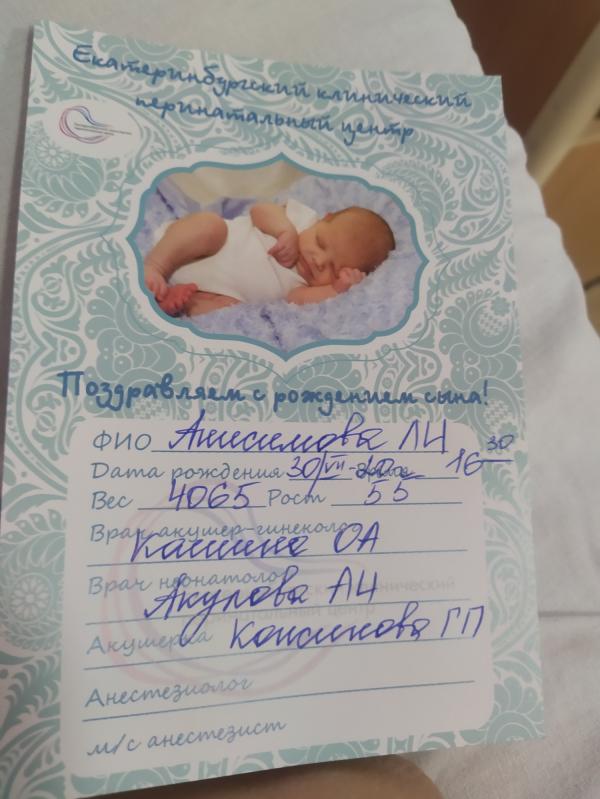 Екатеринбургский клинический
перинатальный центр
Поздравляем с рождением сына!
ФИО Анисимова ЛЧ
Дата рождения 30/VII- 16 30
Вес 4065 Рост 55
Врач акушер-гинеколог
Кашина ОА
Врач неонатолог
Акулова АЧ
Акушерка ГП
Анестезиолог
м/с анестезист